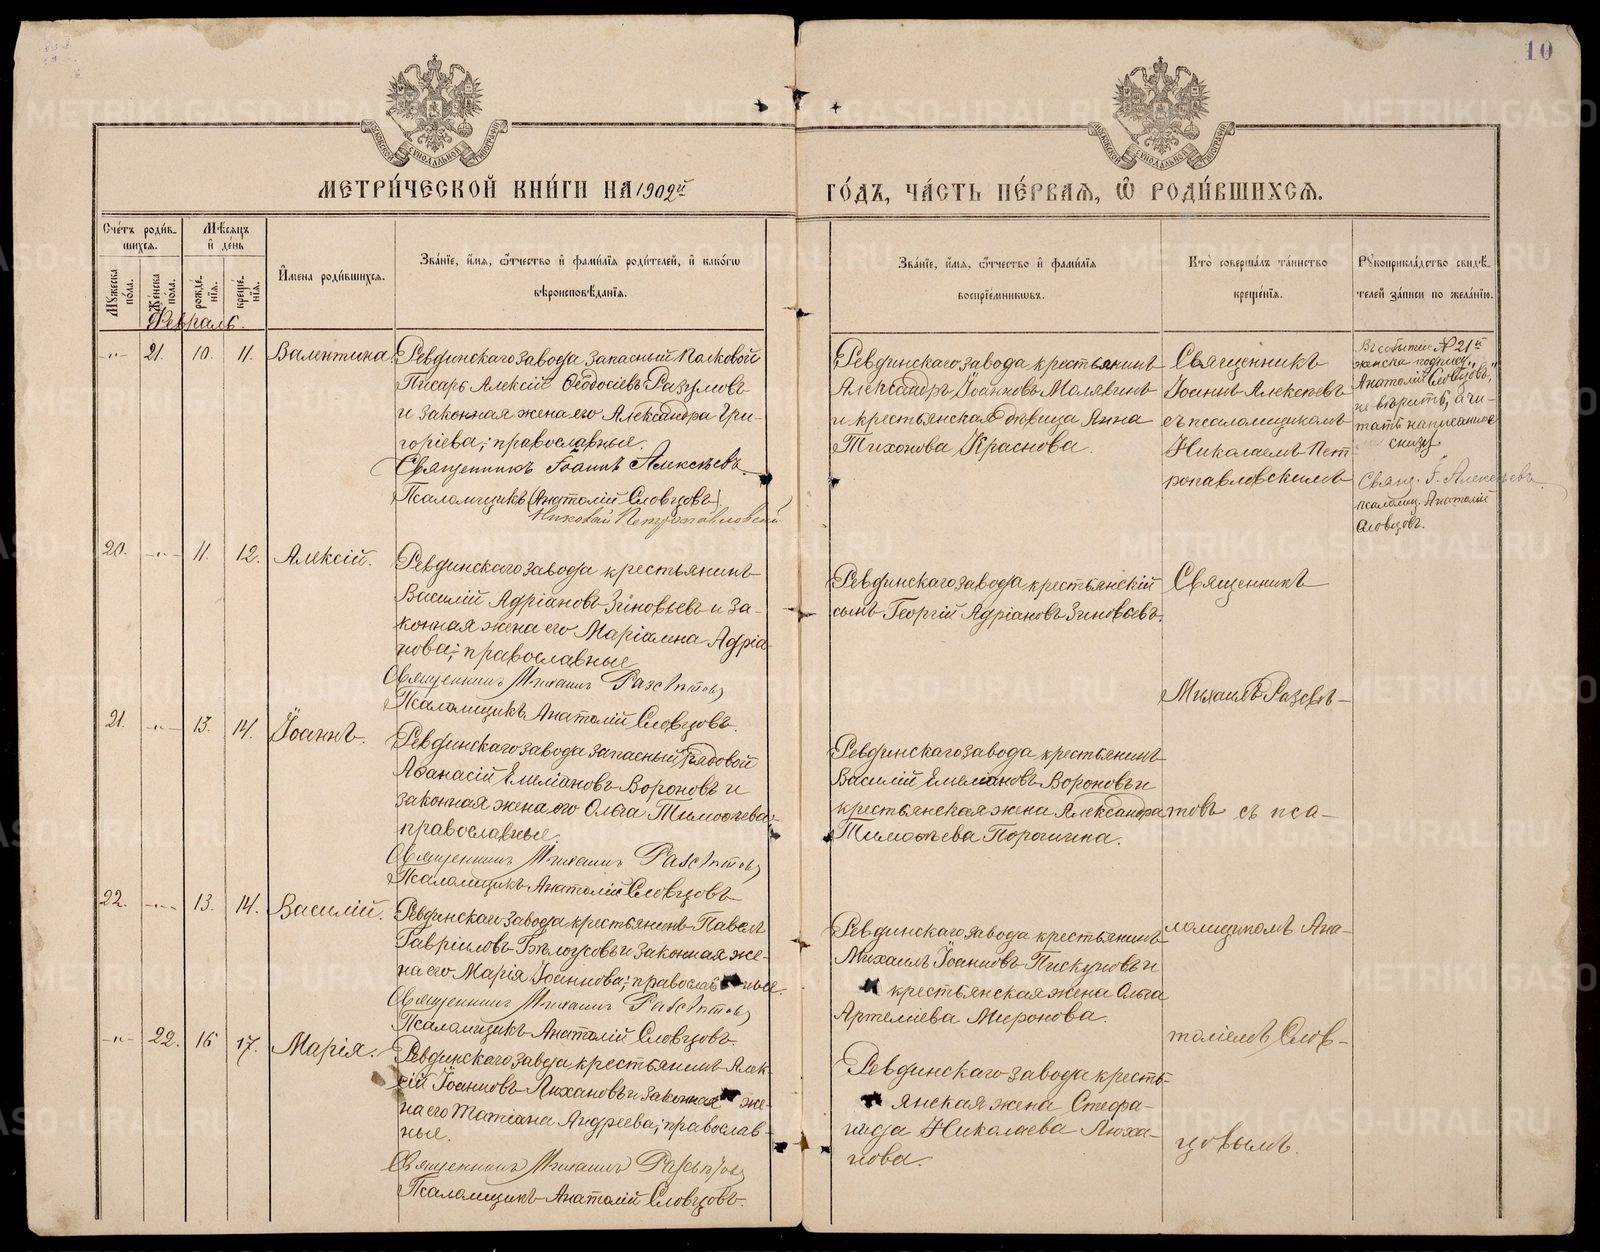 10
МЕТРИ́ЧЕСКОЙ КНИ́ГИ НА 1902й
ГО́ДЪ, ЧА́СТЬ ПЕ́РВАЯ, Ѽ РОДИ́ВШИХСЯ.
МОСКОВСКОЙ СѴНОДАЛЬНОЙ ТИПОГРАФІИ
МОСКОВСКОЙ СѴНОДАЛЬНОЙ ТИПОГРАФІИ
Сче́тъ роди́в-
шихся.
Мѣсяцъ
и҆ де́нь
Мꙋжеска по́ла.
Же́нска по́ла.
рожде́-
нїѧ.
креще́-
нїѧ.
И҆мена роди́вшихся.
Зва́нїе, и҆́мѧ, ѻ҆́тчество и҆ фами́лїѧ роди́телей, и҆ како́гѡ
вѣроисповѣ́данїѧ.
Зва́нїе, и҆́мѧ, ѻ҆́тчество и҆ фами́лїѧ
воспрїе́мникѡвъ.
Кто̀ соверша́лъ та́инство
креще́нїѧ.
Рꙋкоприкла́дство свидѣ́-
телей за́писи по жела́нїю.
Февраль.
-"- 21. 10. 11. Валентина.
Ревдинскаго завода запасный полковой
Писарь Алексій Ѳеодосіевъ Разумовъ
и законная жена его Александра Гри-
горіева; православные.
Священникъ Іоаннъ Алексѣевъ
Псаломщикъ (Анатолій Словцовъ)
Николай Петропавловскій
Ревдинскаго завода крестьянинъ
Александръ Іоанновъ Малявинъ
и крестьянская дѣвица Анна
Тихонова Краснова.
Священникъ
Іоаннъ Алексѣевъ
съ псаломщикомъ
Николаемъ Пет-
ропавловскимъ
Въ событіи №21й
женска подпису
"Анатолій Словцовъ",
не вѣрить, а чи-
тать написанное
снизу
Свящ. І. Алексѣевъ
псаломщ. Анатолій
Словцовъ.
20. -"- 11. 12. Алексій.
Ревдинскаго завода крестьянинъ
Василій Адріановъ Зиновьевъ и за-
конная жена его Маріамна Адріа-
нова; православные
Священникъ Михаилъ Разсвѣтовъ
Псаломщикъ Анатолій Словцовъ.
Ревдинскаго завода крестьянскій
сынъ Георгій Адріановъ Зиновьевъ.
Священникъ
Михаилъ Разсвѣ-
21. -"- 13. 14. Іоаннъ.
Ревдинскаго завода запасный рядовой
Аѳанасій Емеліановъ Вороновъ и
законная жена его Ольга Тимоѳеева;
православные.
Священникъ Михаилъ Разсвѣтовъ
Псаломщикъ Анатолій Словцовъ
Ревдинскаго завода крестьянинъ
Василій Емеліановъ Вороновъ и
крестьянская жена Александра
Тимоѳеева Порошина.
товъ съ пса-
22. -"- 13. 14. Василій.
Ревдинскаго завода крестьянинъ Павелъ
Гавріиловъ Бѣлоусовъ и законная же-
на его Марія Іоаннова; православные.
Священникъ Михаилъ Разсвѣтовъ
Псаломщикъ Анатолій Словцовъ.
Ревдинскаго завода крестьянинъ
Михаилъ Іоанновъ Пискуновъ и
крестьянская жена Ольга
Артеміева Миронова.
ломщикомъ Ана-
толіемъ Слов-
-"- 22. 16 17. Марія.
Ревдинскаго завода крестьянинъ Алек-
сій Іоанновъ Люхановъ и законная же-
на его Татіана Андреева; православ-
ные.
Священникъ Михаилъ Разсвѣтовъ
Псаломщикъ Анатолій Словцовъ.
Ревдинскаго завода кресть-
янская жена Стефа-
нида Николаева Люха-
нова.
цовымъ.
METRIKI.GASO-URAL.RU